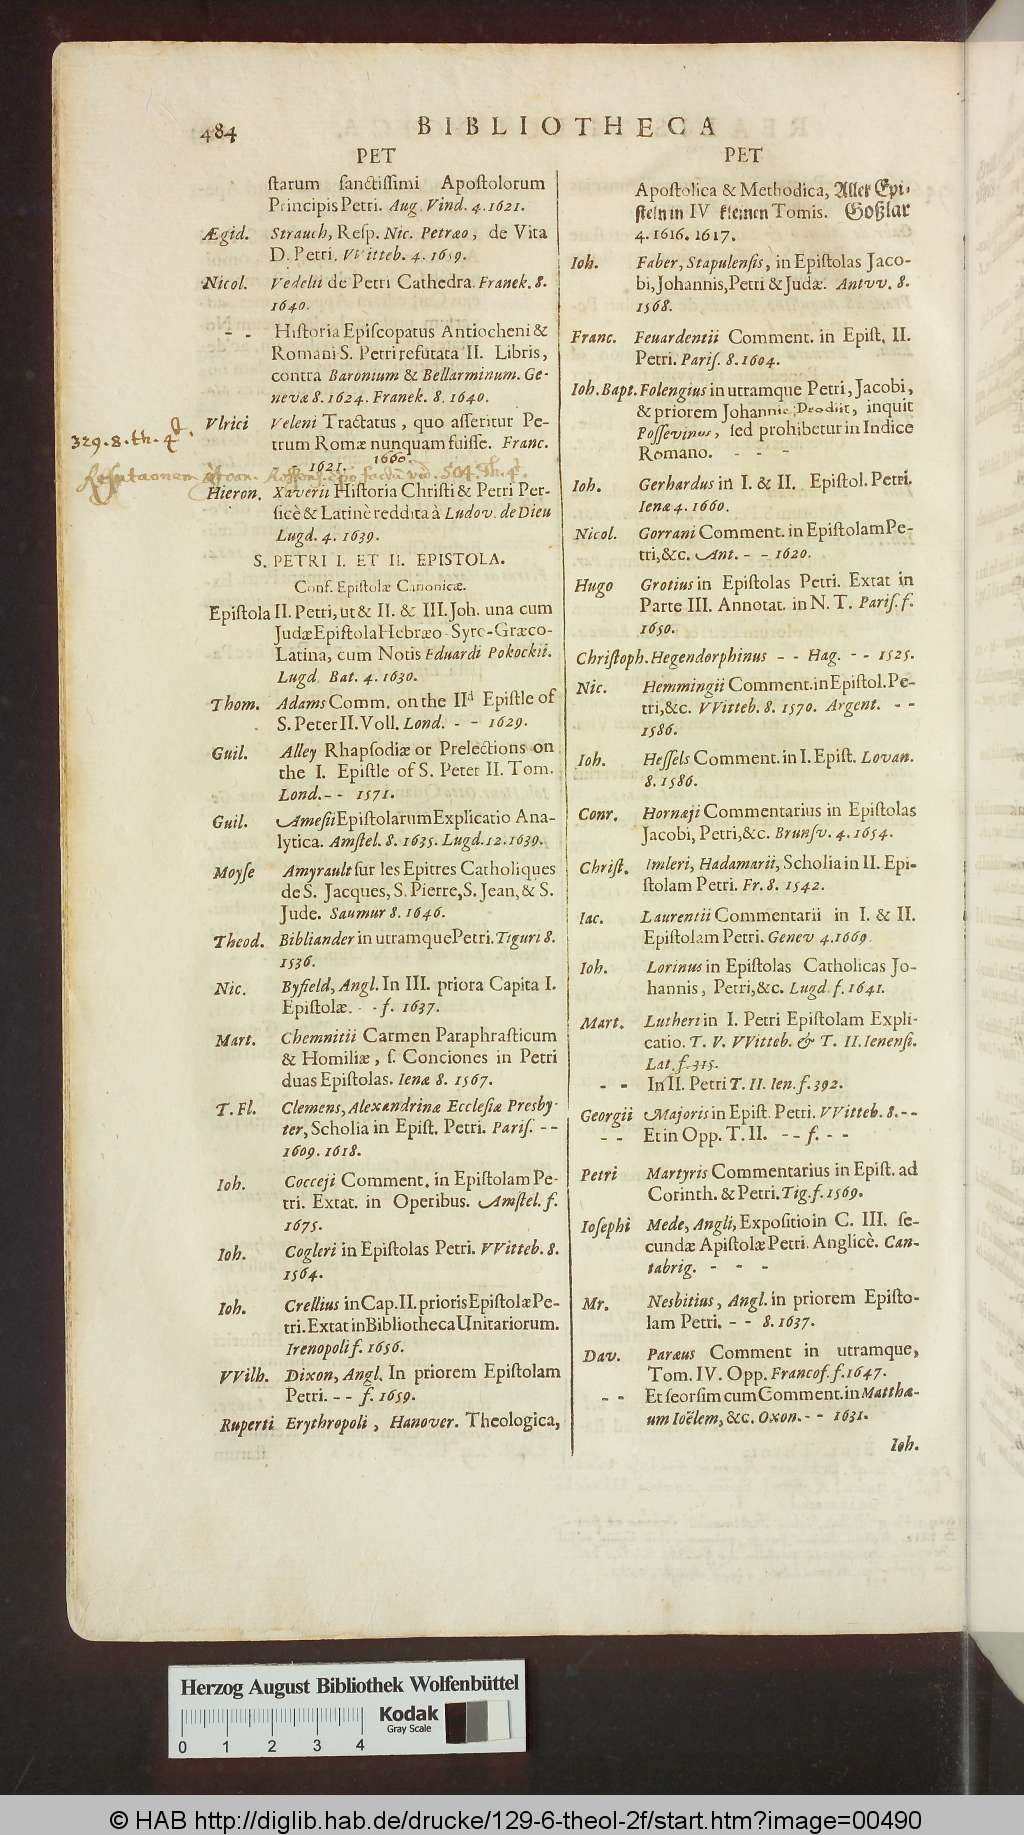 484
BIBLIOTHECA
PET
starum sanctissimi Apostolorum
Principis Petri. Aug. Vind. 4. 1621.
Ægid. Strauch, Resp. Nic. Petræo, de Vita
D. Petri. VVitteb. 4. 1659.
Nicol. Vedelii de Petri Cathedra. Franek. 8.
1640.
- - Historia Episcopatus Antiocheni &
Romani S. Petri refutata II. Libris,
contra Baronium & Bellarminum. Ge-
nevæ 8. 1624. Franek. 8. 1640.
329. 8. th. 4
Vlrici Veleni Tractatus, quo asseritur Pe-
trum Romæ nunquam fuisse. Franc.
1621. 1660.
Refutationem
504. Th. 4
Hieron. Xaverii Historia Christi & Petri Per-
sicè & Latinè reddita à Ludov. de Dieu
Lugd. 4. 1639.
S. PETRI I. ET II. EPISTOLA.
Conf. Epistolæ Canonicæ.
Epistola II. Petri, ut & II. & III. Joh. una cum
Judæ Epistola Hebræo-Syro-Græco-
Latina, cum Notis Eduardi Pokockii.
Lugd. Bat. 4. 1630.
Thom. Adams Comm. on the IId Epistle of
S. Peter II. Voll. Lond. - - 1629.
Guil. Alley Rhapsodiæ or Prelections on
the I. Epistle of S. Peter II. Tom.
Lond. - - 1571.
Guil. Amesii Epistolarum Explicatio Ana-
lytica. Amstel. 8. 1635. Lugd. 12. 1639.
Moyse Amyrault sur les Epitres Catholiques
de S. Jacques, S. Pierre, S. Jean, & S.
Jude. Saumur 8. 1646.
Theod. Bibliander in utramque Petri. Tiguri 8.
1536.
Nic. Byfield, Angl. In III. priora Capita I.
Epistolæ. - - f. 1637.
Mart. Chemnitii Carmen Paraphrasticum
& Homiliæ, s. Conciones in Petri
duas Epistolas. Ienæ 8. 1567.
T. Fl. Clemens, Alexandrinæ Ecclesiæ Presby-
ter, Scholia in Epist. Petri. Paris. - -
1609. 1618.
Ioh. Cocceji Comment. in Epistolam Pe-
tri. Extat. in Operibus. Amstel. f.
1675.
Ioh. Cogleri in Epistolas Petri. VVitteb. 8.
1564.
Ioh. Crellius in Cap. II. prioris Epistolæ Pe-
tri. Extat in Bibliotheca Unitariorum.
Irenopoli f. 1656.
VVilh. Dixon, Angl. In priorem Epistolam
Petri. - - f. 1659.
Ruperti Erythropoli, Hanover. Theologica,
PET
Apostolica & Methodica, Aller Epi-
steln in IV kleinen Tomis. Goßlar
4. 1616. 1617.
Ioh. Faber, Stapulensis, in Epistolas Jaco-
bi, Johannis, Petri & Judæ. Antvv. 8.
1568.
Franc. Feuardentii Comment. in Epist. II.
Petri. Paris. 8. 1604.
Ioh. Bapt. Folengius in utramque Petri, Jacobi,
& priorem Johannis, Prodiit, inquit
Possevinus, sed prohibetur in Indice
Romano. - - -
Ioh. Gerhardus in I. & II. Epistol. Petri.
Ienæ 4. 1660.
Nicol. Gorrani Comment. in Epistolam Pe-
tri, &c. Ant. - - 1620.
Hugo Grotius in Epistolas Petri. Extat in
Parte III. Annotat. in N. T. Paris. f.
1650.
Christoph. Hegendorphinus - - Hag. - - 1525.
Nic. Hemmingii Comment. in Epistol. Pe-
tri, &c. VVitteb. 8. 1570. Argent. - -
1586.
Ioh. Hessels Comment. in I. Epist. Lovan.
8. 1586.
Conr. Hornæji Commentarius in Epistolas
Jacobi, Petri, &c. Brunsv. 4. 1654.
Christ. Imleri, Hadamarii, Scholia in II. Epi-
stolam Petri. Fr. 8. 1542.
Iac. Laurentii Commentarii in I. & II.
Epistolam Petri. Genev 4. 1669.
Ioh. Lorinus in Epistolas Catholicas Jo-
hannis, Petri, &c. Lugd. f. 1641.
Mart. Lutheri in I. Petri Epistolam Expli-
catio. T. V. VVitteb. & T. II. Ienensi.
Lat. f. 315.
- - In II. Petri T. II. Ien. f. 392.
Georgii Majoris in Epist. Petri. VVitteb. 8. - -
- - Et in Opp. T. II. - - f. - -
Petri Martyris Commentarius in Epist. ad
Corinth. & Petri. Tig. f. 1569.
Iosephi Mede, Angli, Expositio in C. III. se-
cundæ Apistolæ Petri. Anglicè. Can-
tabrig. - - -
Mr. Nesbitius, Angl. in priorem Episto-
lam Petri. - - 8. 1637.
Dav. Paræus Comment in utramque,
Tom. IV. Opp. Francof. f. 1647.
- - Et seorsim cum Comment. in Matthæ-
um Ioëlem, &c. Oxon. - - 1631.
Ioh.
Herzog August Bibliothek Wolfenbüttel
Kodak
Gray Scale
0 1 2 3 4
© HAB http://diglib.hab.de/drucke/129-6-theol-2f/start.htm?image=00490